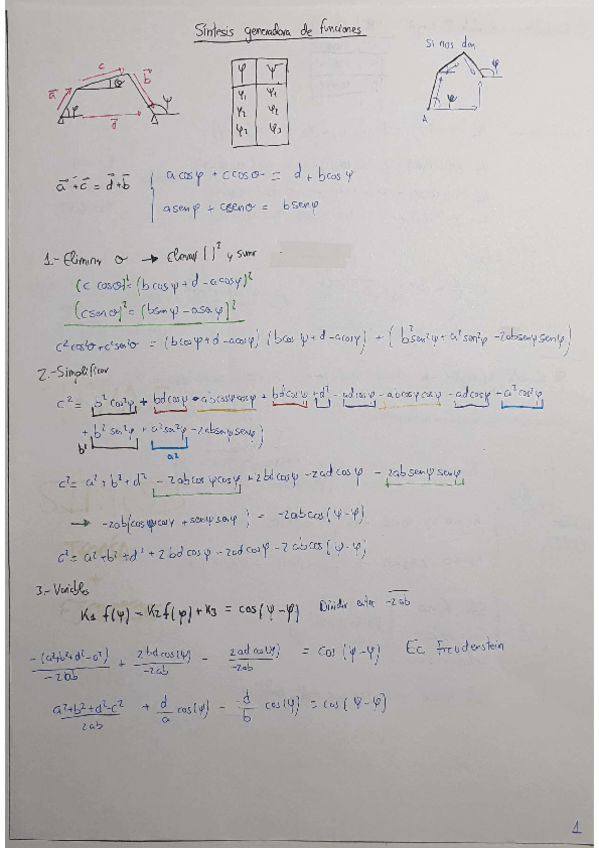 Síntesis generadora de funciones
φ ψ
φ₁ ψ₁
φ₂ ψ₂
φ₂ ψ₃
a c θ b φ ψ d
Si nos dan
φ ψ A
a⃗+c⃗ = d⃗+b⃗
a cosφ + c cosθ = d + b cosψ
a senφ + c senθ = b senψ
1.- Eliminar θ → elevar( )² y sumar
(c cosθ)² = (b cosψ + d - a cosφ)²
(c senθ)² = (b senψ - a senφ)²
c²cos²θ + c²sen²θ = (b cosψ + d - a cosφ) (b cosψ + d - a cosφ) + (b²sen²ψ + a²sen²φ - 2ab senψ senφ)
2.- Simplificar
c² = b²cos²ψ + bd cosψ - ab cosψ cosφ + bd cosψ + d² - ad cosφ - ab cosψ cosφ - ad cosφ - a²cos²φ
+ b²sen²ψ + a²sen²φ - 2ab senψ senφ)
b² a²
c² = a² + b² + d² - 2ab cosψ cosφ + 2bd cosψ - 2ad cosφ - 2ab senψ senφ
→ -2ab(cosψ cosφ + senψ senφ) = -2ab cos(ψ-φ)
c² = a² + b² + d² + 2bd cosψ - 2ad cosφ - 2ab cos(ψ-φ)
3.- Variables
K₁ f(ψ) - K₂ f(φ) + K₃ = cos(ψ-φ) Dividir entre -2ab
-(a²+b²+d²-c²)/-2ab + 2bd cos(ψ)/-2ab - 2ad cos(φ)/-2ab = cos(ψ-φ) Ec Freudenstein
a²+b²+d²-c²/2ab + d/a cos(ψ) - d/b cos(φ) = cos(ψ-φ)
1